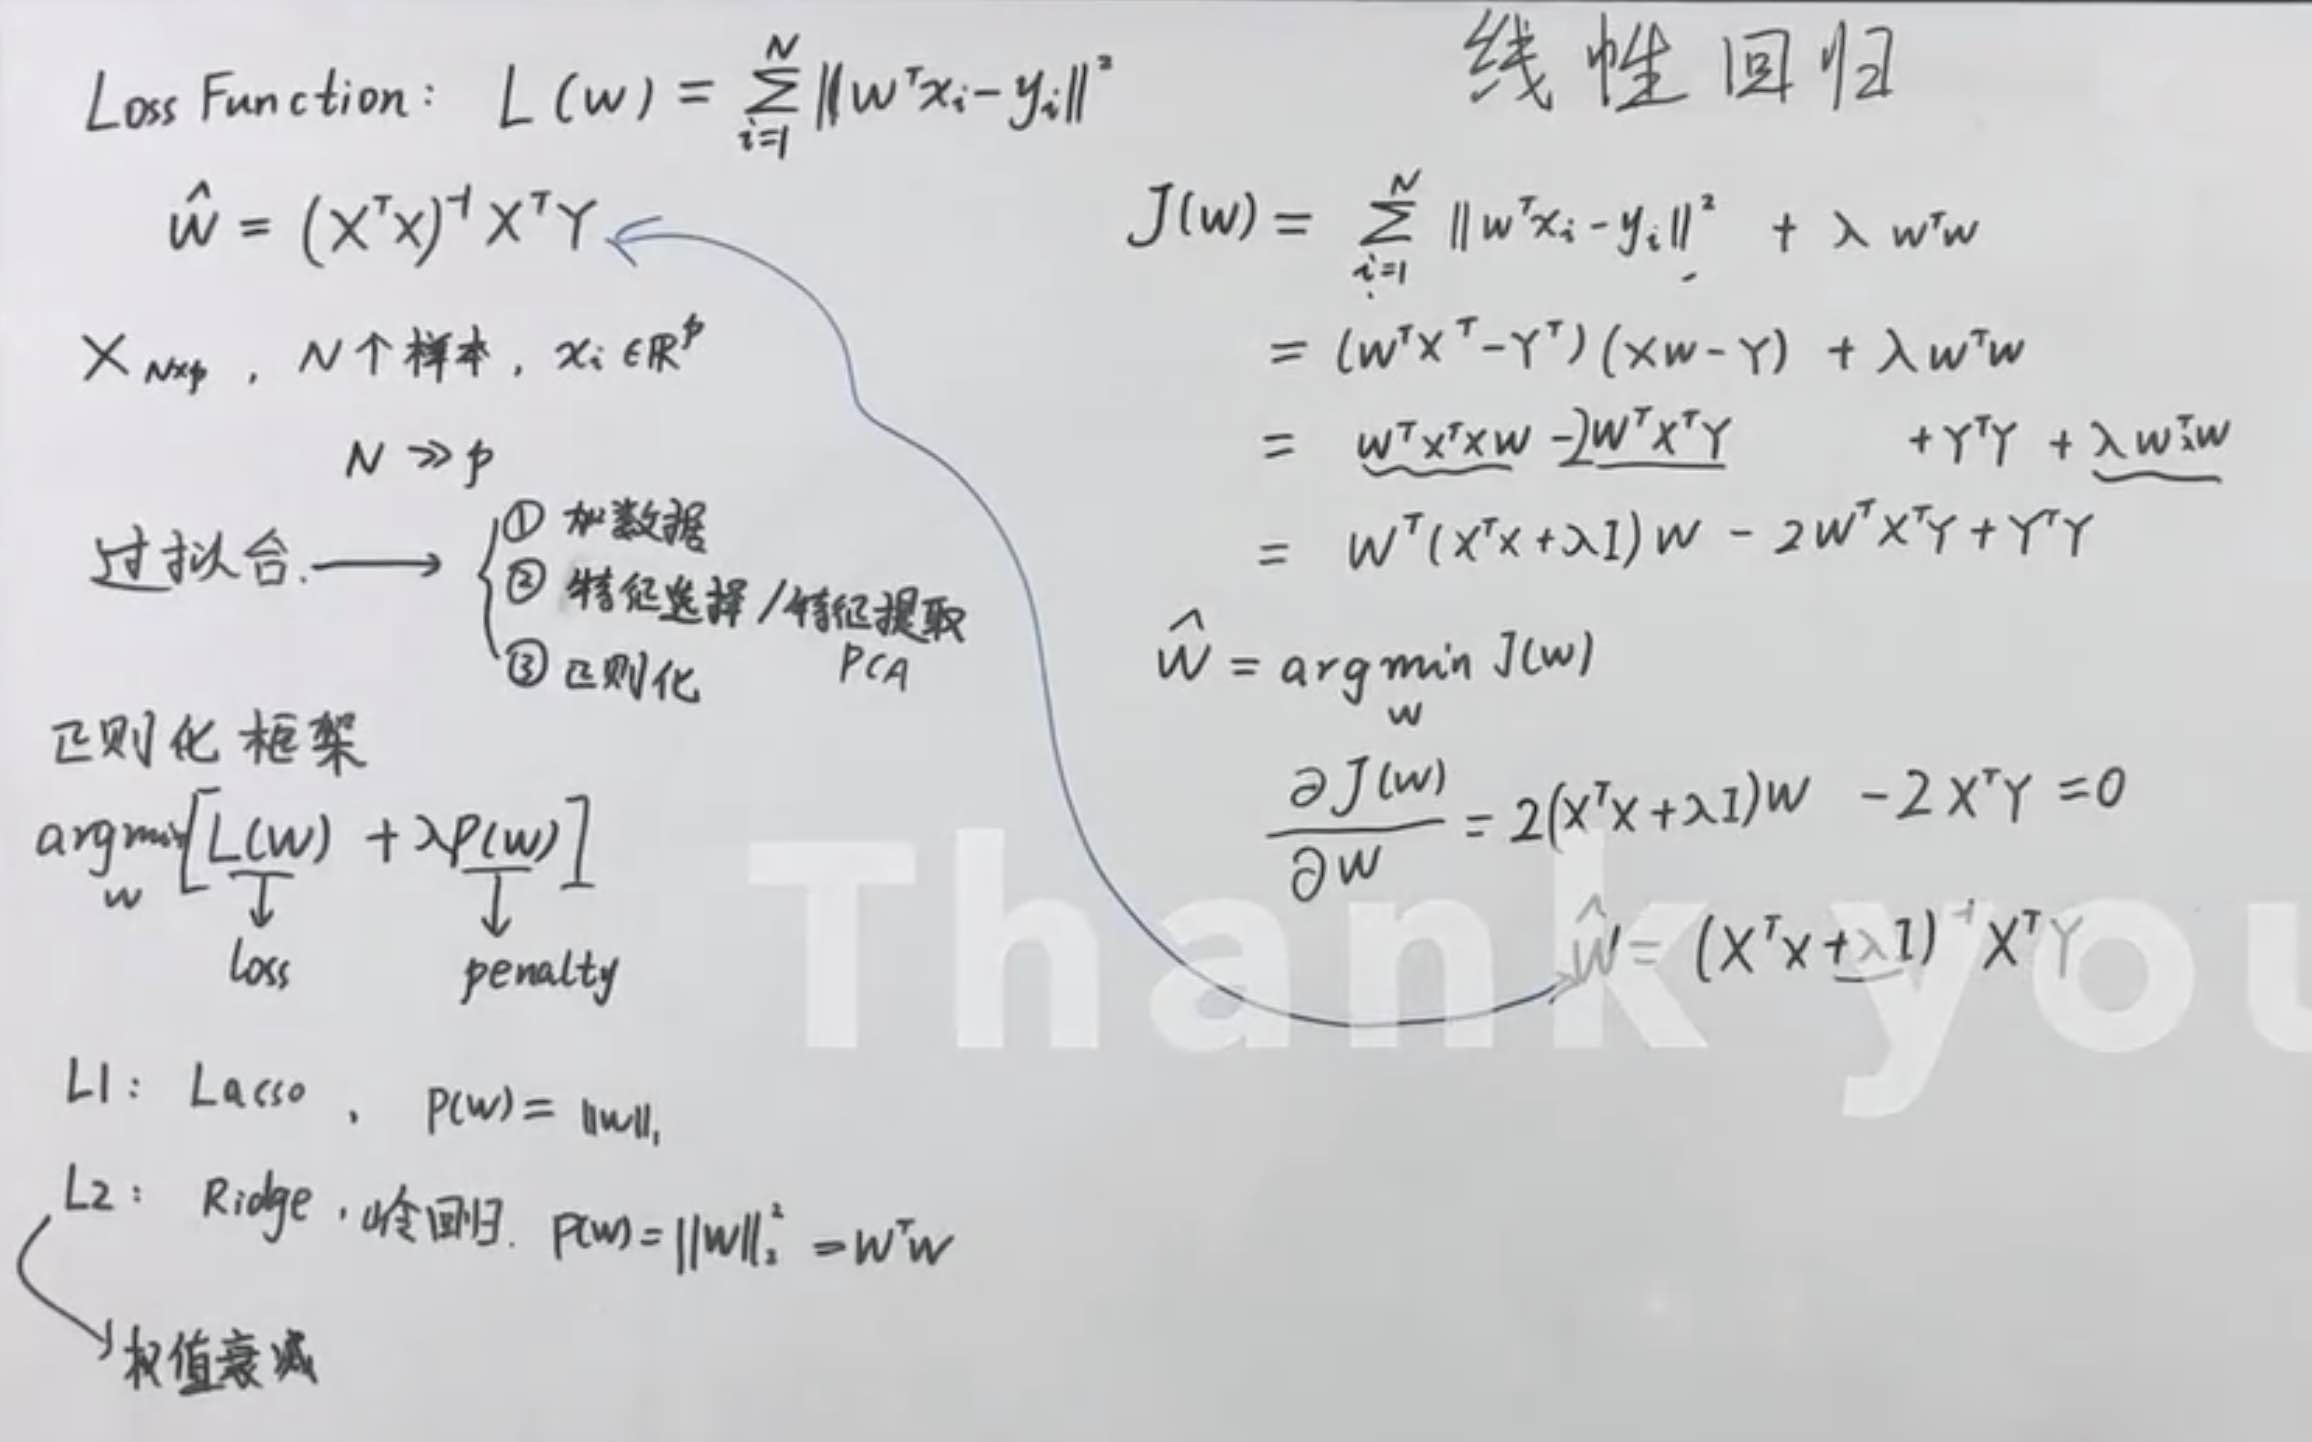 线性回归
Loss Function: L(w) = Σ_{i=1}^{N} ‖wᵀxᵢ - yᵢ‖²
ŵ = (XᵀX)⁻¹XᵀY
X_{N×p}, N个样本, xᵢ ∈ ℝᵖ
N ≫ p
过拟合. ⟶
① 加数据
② 特征选择/特征提取
PCA
③ 正则化
正则化框架
argmin [L(w) + λP(w)]
w
loss penalty
L1: Lasso, P(w) = ‖w‖₁
L2: Ridge, 岭回归. P(w) = ‖w‖₂² = wᵀw
权值衰减
J(w) = Σ_{i=1}^{N} ‖wᵀxᵢ - yᵢ‖² + λ wᵀw
= (wᵀXᵀ - Yᵀ)(Xw - Y) + λwᵀw
= wᵀXᵀXw - 2wᵀXᵀY + YᵀY + λwᵀw
= wᵀ(XᵀX + λI)w - 2wᵀXᵀY + YᵀY
ŵ = argmin J(w)
w
∂J(w)/∂w = 2(XᵀX + λI)w - 2XᵀY = 0
ŵ = (XᵀX + λI)⁻¹XᵀY
Thank you